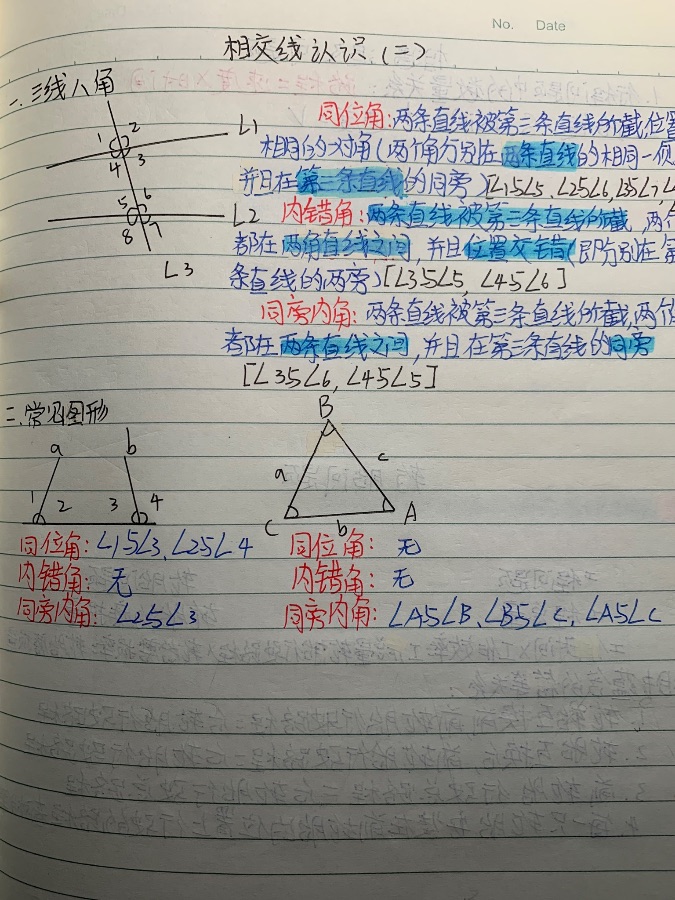 No. Date
相交线认识(二)
一.三线八角
1 2 3 4 5 6 7 8
L1
L2
L3
同位角:两条直线被第三条直线所截,位置
相同的一对角(两个角分别在两条直线的相同一侧
并且在第三条直线的同旁)[∠1与∠5,∠2与∠6,∠3与∠7,∠
内错角:两条直线被第三条直线所截,两个
都在两角直线之间,并且位置交错(即分别在第
条直线的两旁)[∠3与∠5,∠4与∠6]
同旁内角:两条直线被第三条直线所截,两个
都在两条直线之间,并且在第三条直线的同旁
[∠3与∠6,∠4与∠5]
二.常见图形
a b
1 2 3 4
B
a c
C b A
同位角:∠1与∠3、∠2与∠4
内错角:无
同旁内角:∠2与∠3
同位角:无
内错角:无
同旁内角:∠A与∠B、∠B与∠C、∠A与∠C